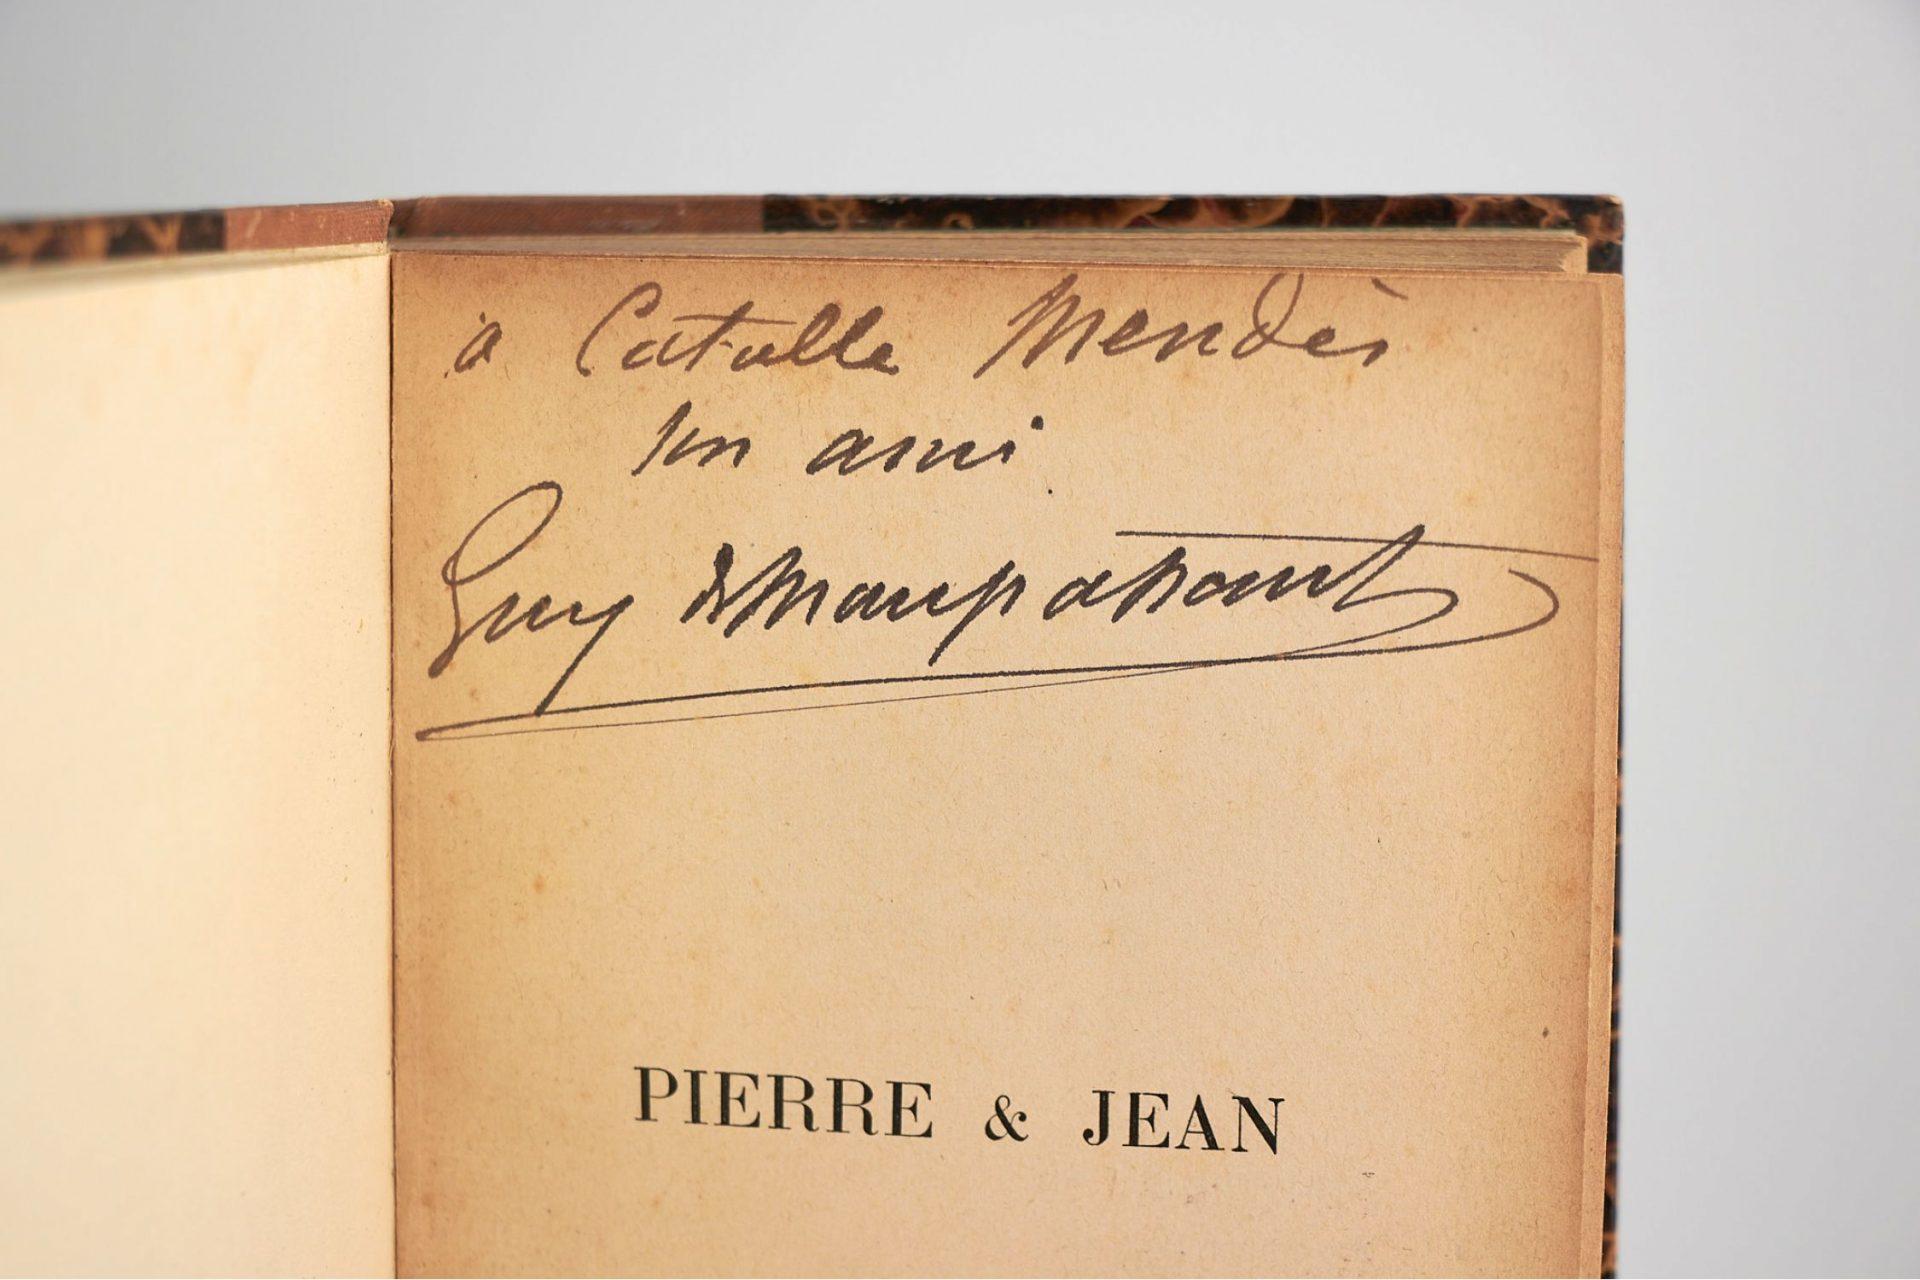 à Catulle Mendès
son ami
Guy de Maupassant
PIERRE & JEAN